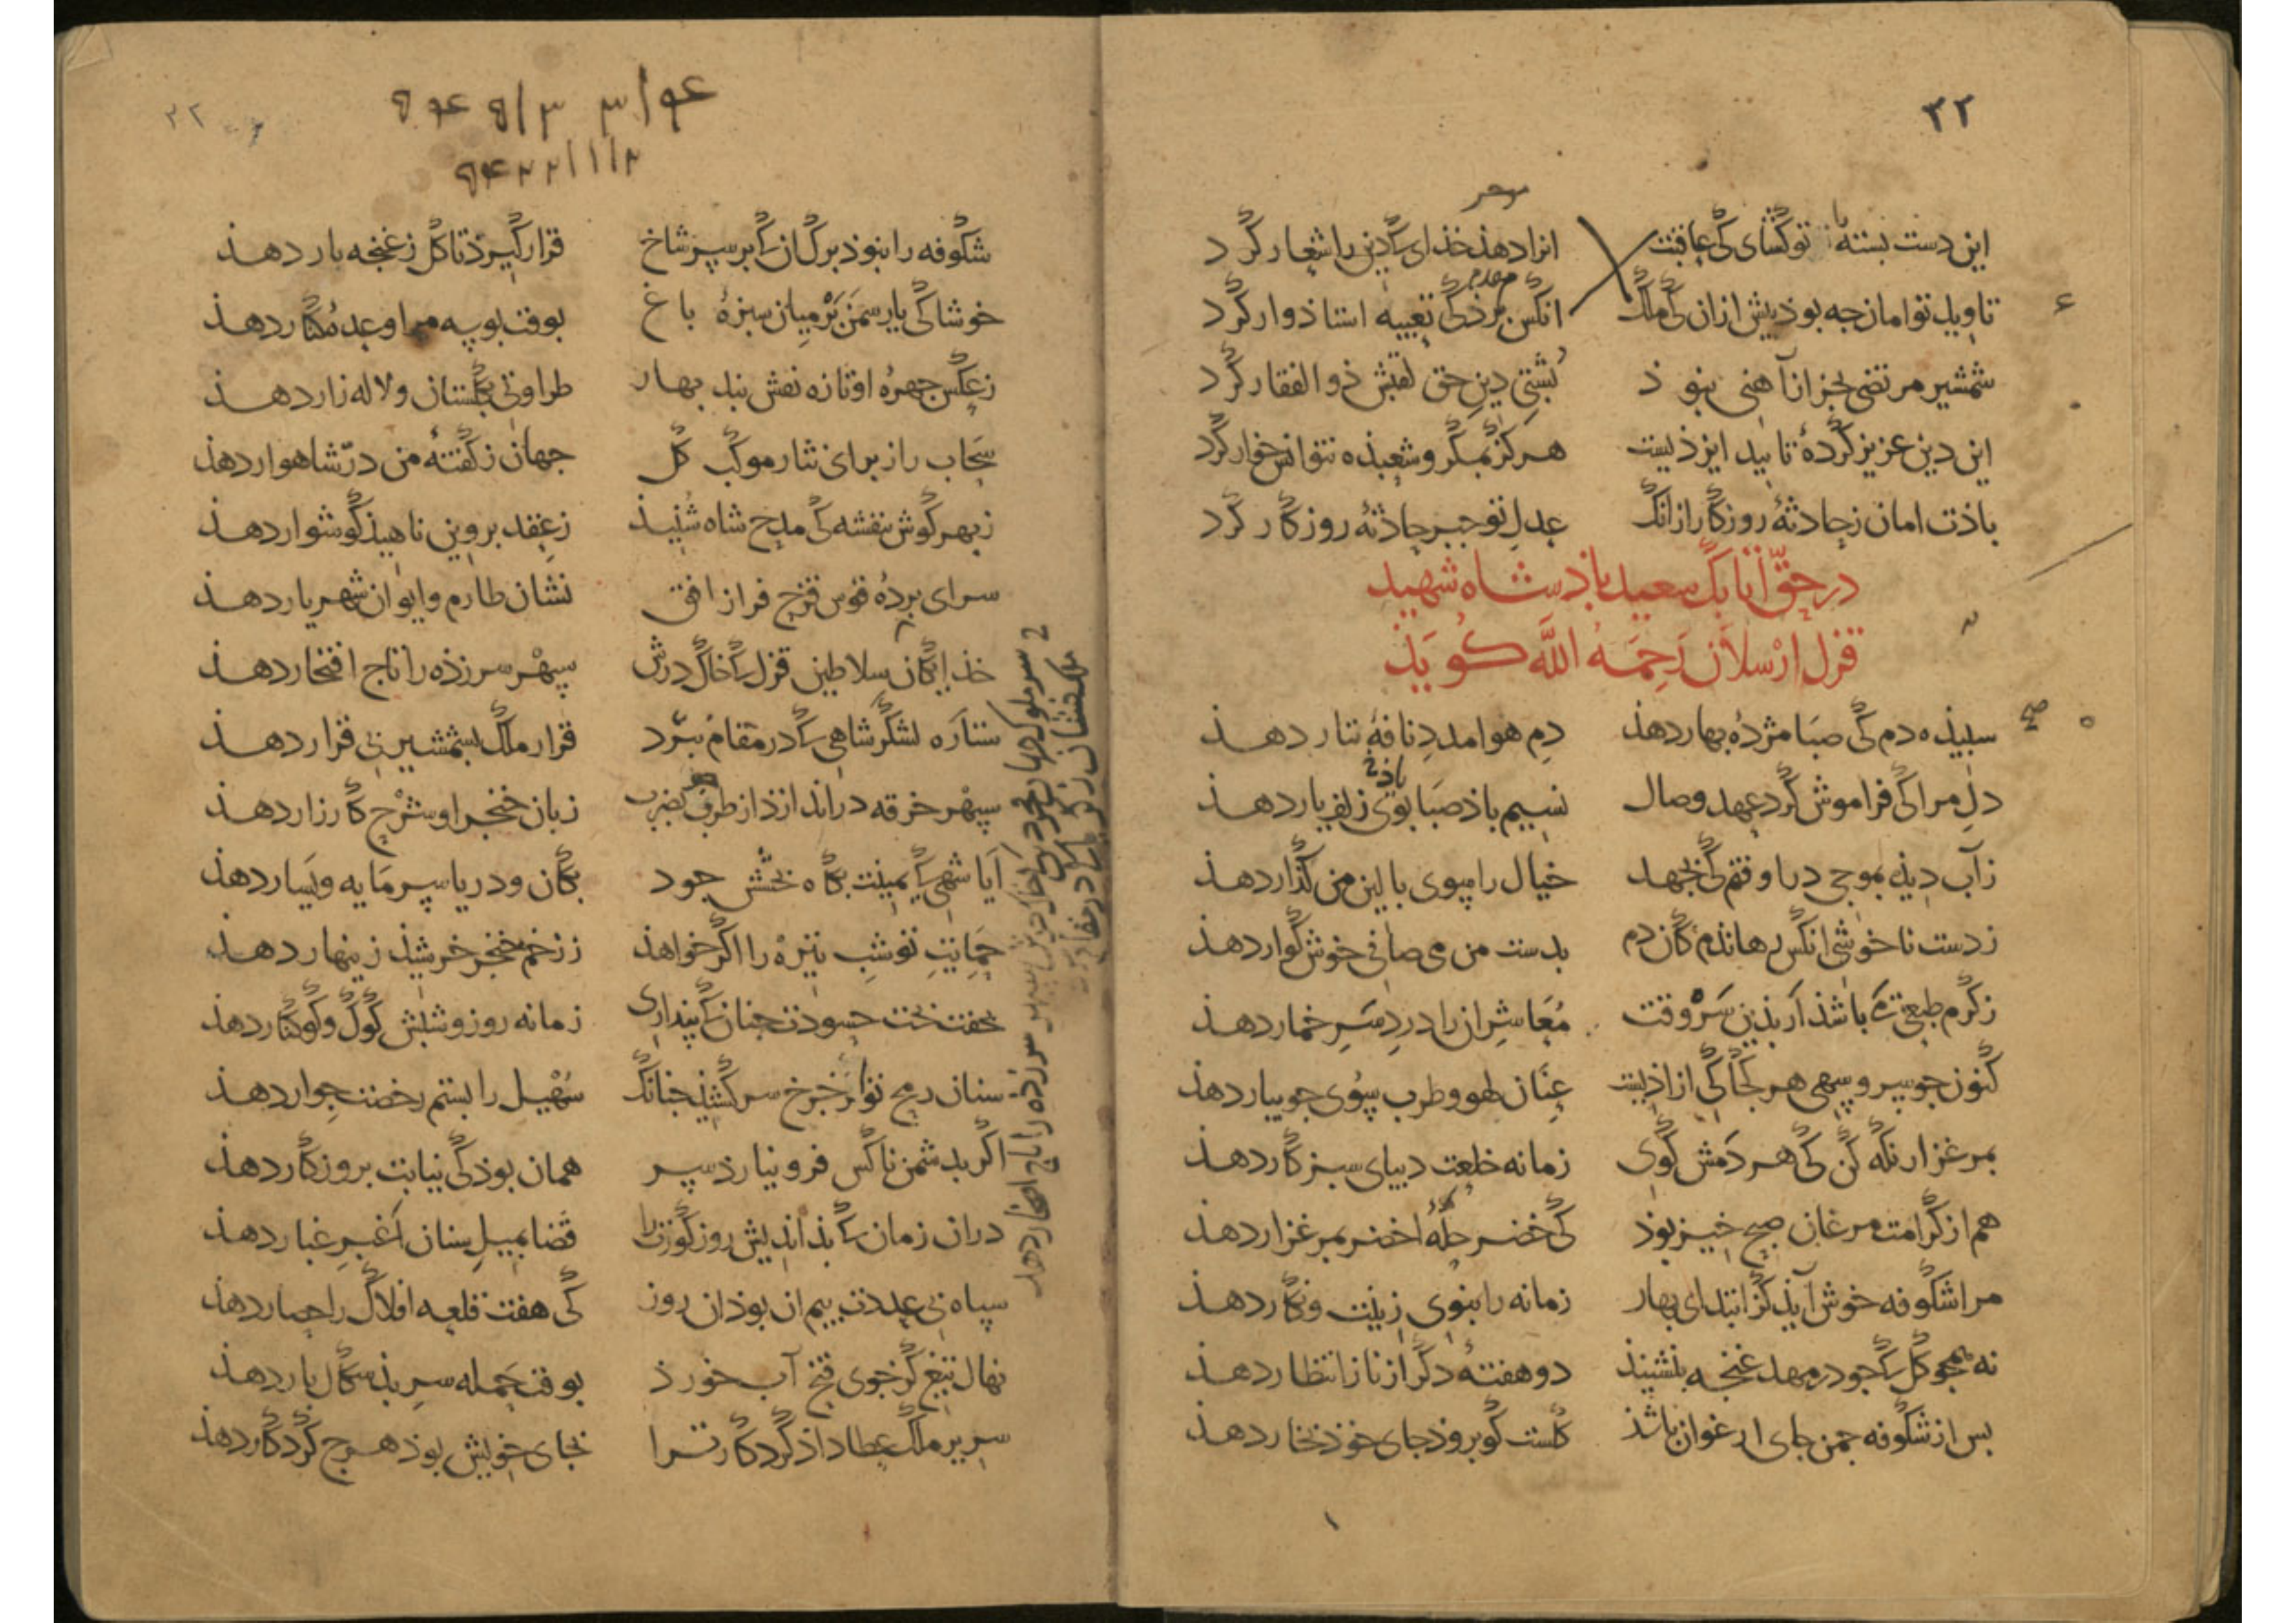 ۲۲
موخر
این دست بسته با تو کشای کی عاقبت انرا دهذ خذای که دین را شعار کرد
تاویل توامان جه بوذ بیش ازان کی ملک انکس برذ کی تعبیه استاذوار کرد
مقدم
شمشیر مرتضی بجز از آهنی نبوذ بشتی دین حق لقبش ذوالفقار کرد
این دین عزیز کردهٔ تایید ایزذیست هرکز بمکر و شعبذه نتوانش خوار کرد
باذت امان ز حادثهٔ روزکار ازانک عدل تو جبر حادثهٔ روزکار کرد
در حقّ اتابک سعید باذشاه شهید
قزل ارسلان رَحِمَهُ اللَّه کویذ
سبیذه دم کی صبا مژدهٔ بهار دهذ دم هوا مدد نافهٔ تتار دهذ
دل مرا کی فراموش کرد عهد وصال نسیم باذ صبا بوی زلف یار دهذ
باذ
ز آب دیذه بموجی دراوفتم کی بجهد خیال را بسوی بالین من کذار دهذ
ز دست ناخوشی انکس رهاندم کان دم بدست من می صافی خوش کوار دهذ
ز کرم طبعی که باشذ ار بذین سر وقت معاشران را درد سر خمار دهذ
کنون جو سرو سهی هر کجا کی ازاذیست عنان لهو و طرب سوی جویبار دهذ
بمرغزار نکه کن کی هر دمش کوی زمانه خلعت دیبای سبزکار دهذ
هم از کرامت مرغان صبح خیز بوذ کی خضر حلهٔ اخضر بمرغزار دهذ
مرا شکوفه خوش آیذ کز ابتدای بهار زمانه را بنوی زینت و نکار دهذ
نه همجو کل که جو در مهد غنجه بنشینذ دو هفتهٔ دکر از ناز انتظار دهذ
بس از شکوفه جمن جای ارغوان باشذ کلست کو بروذ جای خوذ بخار دهذ
۲۲
شکوفه را نبوذ برک ان که بر سر شاخ قرار کیرذ تا کل ز غنجه بار دهذ
خوشا کی یار سمن بر میان سبزهٔ باغ بوقت بوسه مرا وعدهٔ کنار دهذ
ز عکس جهرهٔ او تازه نقش بند بهار طراوتی بکلستان و لاله زار دهذ
سحاب را ز برای نثار موکب کل جهان ز کفتهٔ من درّ شاهوار دهذ
ز بهر کوش بنفشه کی مدح شاه شنیذ ز عقد بروین ناهیذ کوشوار دهذ
سرای بردهٔ قوس قزح فراز افق نشان طارم و ایوان شهریار دهذ
خذایکان سلاطین قزل که خاک درش سبهر سرزذه را تاج افتخار دهذ
ستاره لشکر شاهی که در مقام نبرد قرار ملک بشمشیر بی قرار دهذ
سبهر خرقه دراندازذ از طرف کضرب زبان خنجر او شرح کارزار دهذ
ایا شهی که یمینت بکاه بخشش جود بکان و دریا سرمایه و یسار دهذ
حمایت تو شب تیره را اکر خواهذ ز زخم خنجر خرشیذ زینهار دهذ
بخفت بخت حسودت جنان که بنداری زمانه روز و شبش کوک و کوکنار دهذ
سنان رمح تو بر جرخ سر کشیذ جنانک سهیل را بستم رخصت جوار دهذ
اکر بدشمن ناکس فرو نیارذ سر همان بوذ کی نیابت بروزکار دهذ
دران زمان که بذاندیش روز کورت را قضا بمیل سنان اغبر غبار دهذ
سباه بی عددت بیم ان بوذ ان روز کی هفت قلعه افلاک را حصار دهذ
نهال تیغ کز جوی فتح آب خورذ بوقت حمله سر بذسکال بار دهذ
سریر ملک عطا داذ کردکار ترا بجای خویش بوذ هرج کردکار دهذ